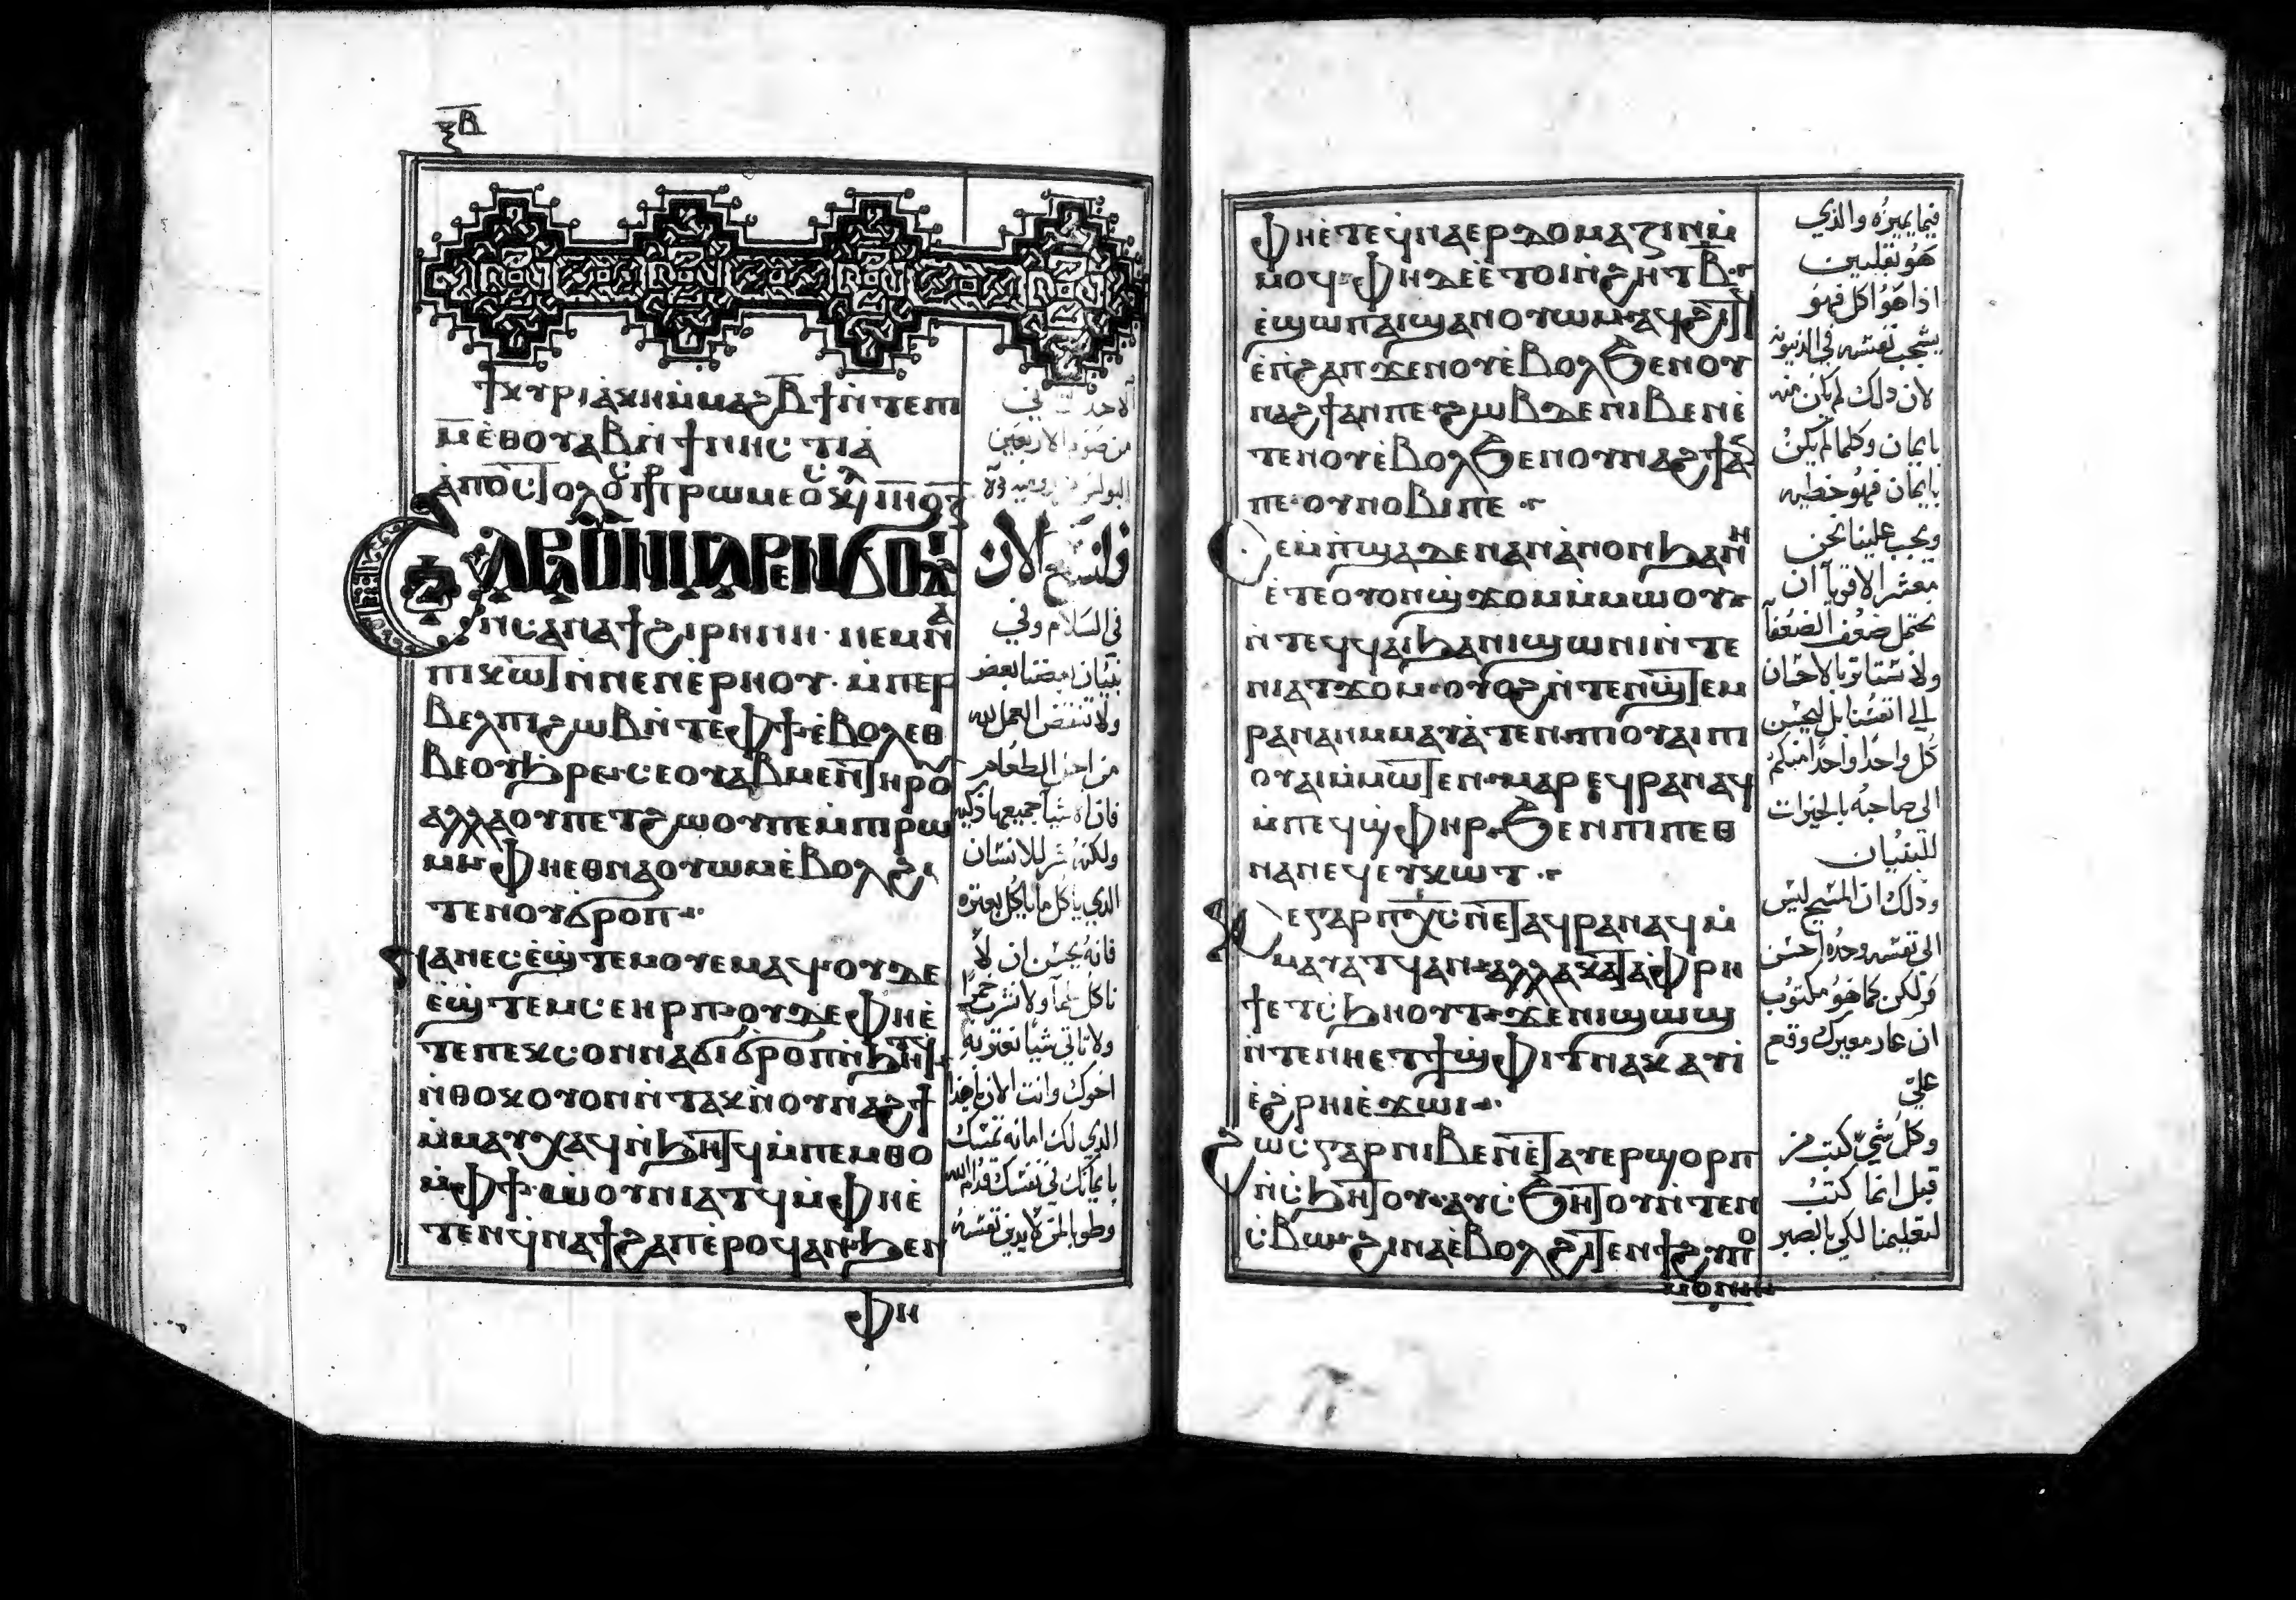 ⲝ̅ⲃ̅
ϯⲕⲩⲣⲓⲁⲕⲏⲙ̀ⲙⲁϩⲃ̅ϯⲛ̀ⲧⲉⲡⲓ
ⲙ̅ⲉ̀ⲑⲟⲩⲁⲃⲛ̀ϯⲛⲏⲥⲧⲓⲁ̀
ⲥⲁⲛⲥⲁⲛⲁϯϩⲓⲣⲏⲛⲏ· ⲛⲉⲙⲛⲁ
ⲡⲓⲕⲱⲧⲛ̀ⲛⲉⲛⲉ̀ⲣⲏⲟⲩ· ⲙ̀ⲡⲉⲣ
ⲃⲉⲗⲡⲓϩⲱⲃⲛ̀ⲧⲉⲫϯⲉ̀ⲃⲟⲗⲉⲑ
ⲃⲉⲟⲩϧⲣⲉ·ⲥⲉⲟⲩⲁⲃⲙⲉⲛⲧⲏⲣⲟⲩ
ⲁⲗⲗⲁⲟⲩⲡⲉⲧϩⲱⲟⲩⲡⲉⲙ̀ⲡⲓⲣⲱ
ⲙⲓ·ⲫⲏⲉⲑⲛⲁⲟⲩⲱⲙⲉ̀ⲃⲟⲗϩⲓ
ⲧⲉⲛⲟⲩϭⲣⲟⲡ·
ⲛⲁⲛⲉⲥⲉ̀ϣⲧⲉⲙⲟⲩⲉⲙⲁϥ·ⲟⲩⲇⲉ
ⲉ̀ϣⲧⲉⲙⲥⲉⲏⲣⲡ·ⲟⲩⲇⲉⲫⲏⲉ̀
ⲧⲉⲡⲉⲕⲥⲟⲛⲛⲁϭⲓϭⲣⲟⲡⲛ̀ϧⲏⲧϥ
ⲛ̀ⲑⲟⲕⲟⲩⲟⲛⲛ̀ⲧⲁⲕⲛ̀ⲟⲩⲛⲁϩϯ
ⲙ̀ⲙⲁⲩⲭⲁϥⲛ̀ϧⲏⲧϥⲙ̀ⲡⲉⲙⲑⲟ
ⲙ̀ⲫϯ·ⲱ̀ⲟⲩⲛⲓⲁⲧϥⲙ̀ⲫⲏⲉ̀
ⲧⲉⲛϥⲛⲁϯϩⲁⲡⲉ̀ⲣⲟϥⲁⲛ·ϧⲉⲛ
ⲫⲏ
فلنسع الان
في السلام وفي
بنيان بعضنا بعض
ولا تنقض العمل لله
من اجل الطعام
ولكنه شر للانسان
الذي ياكل ما ياكل بعثره
فانه يحسن ان لا
ناكل لحما ولا نشرب خمرا
ولا ناتي شيا نعثر به
اخوك وانت الان ايضا
الذي لك امانه تمسك
بايمانك في نفسك قدام الله
وطوبا لمن لا يدين نفسه
ⲫⲏⲉ̀ⲧⲉϥⲛⲁⲉⲣⲇⲟⲕⲓⲙⲁⲍⲓⲛⲙ̀
ⲙⲟϥ·ⲫⲏⲇⲉⲉ̀ⲧⲟⲓⲛ̀ϩⲏⲧⲃ̅·
ⲉ̀ϣⲱⲡⲁϥϣⲁⲛⲟⲩⲱⲙ·ⲁϥϩⲓⲧϥ
ⲉ̀ⲡ̀ϩⲁⲡ·ϫⲉⲛⲟⲩⲉ̀ⲃⲟⲗϧⲉⲛⲟⲩ
ⲛⲁϩϯⲁⲛⲡⲉ·ϩⲱⲃⲇⲉⲛⲓⲃⲉⲛⲉ̀
ⲧⲉⲛⲟⲩⲉ̀ⲃⲟⲗϧⲉⲛⲟⲩⲛⲁϩϯⲁⲛ
ⲡⲉ·ⲟⲩⲛⲟⲃⲓⲡⲉ·
ⲥⲉⲙ̀ⲡϣⲁⲇⲉⲛⲁⲛⲁ̀ⲛⲟⲛϧⲁⲛⲏ
ⲉ̀ⲧⲉⲟⲩⲟⲛϣϫⲟⲙⲙ̀ⲙⲱⲟⲩ·
ⲛ̀ⲧⲉϥϥⲁⲓϧⲁⲛⲓϣⲱⲛⲓⲛ̀ⲧⲉ
ⲛⲓⲁⲧϫⲟⲙ·ⲟⲩⲟϩⲛ̀ⲧⲉⲛϣⲧⲉⲙ
ⲣⲁⲛⲁⲛⲙ̀ⲙⲁⲩⲁ̀ⲧⲉⲛ·ⲡⲓⲟⲩⲁⲓⲡⲓ
ⲟⲩⲁⲓⲙ̀ⲙⲱⲧⲉⲛ·ⲙⲁⲣⲉϥⲣⲁⲛⲁϥ
ⲙ̀ⲡⲉϥϣⲫⲏⲣ·ϧⲉⲛⲡⲓⲡⲉⲑ
ⲛⲁⲛⲉϥⲉⲩⲕⲱⲧ·
ⲕⲉⲅⲁⲣⲡⲭ̅ⲥ̅ⲛ̀ⲉⲧⲁϥⲣⲁⲛⲁϥⲙ̀
ⲙⲁⲩⲁⲧϥⲁⲛ·ⲁⲗⲗⲁⲕⲁⲧⲁⲫⲣⲏ
ϯⲉⲧⲥ̀ϧⲏⲟⲩⲧ·ϫⲉⲛⲓϣⲱϣ
ⲛ̀ⲧⲉⲛⲏⲉⲧϯϣⲫⲓⲧⲛⲁⲕⲁⲩⲓ̀
ⲉ̀ϩⲣⲏⲓⲉ̀ϫⲱⲓ·
ϩⲱⲥⲅⲁⲣⲛⲓⲃⲉⲛⲉ̀ⲧⲁⲩⲉⲣϣⲟⲣⲡ
ⲛ̀ⲥ̀ϧⲏⲧⲟⲩ·ⲁⲩⲥ̀ϧⲏⲧⲟⲩⲛ̀ⲧⲉⲛ
ⲥ̀ⲃⲱ·ϩⲓⲛⲁⲉ̀ⲃⲟⲗϩⲓⲧⲉⲛϯϩⲩⲡⲟ
ⲙⲟⲛⲏ
فيما يميزه والذي
هو بقلبين
اذا هو اكل فهو
يشجب نفسه في الدينونه
لان ذلك لم يكن منه
بايمان وكلما لم يكن
بايمان فهو خطيه
ويجب علينا نحن
معشر الاقويا ان
نحتمل ضعف الضعفا
كل واحدا واحدا منكم
الى صاحبه بالخيرات
للبنيان
وذلك ان المسيح ليس
الى نفسه وحده احسن
ولكن كما هو مكتوب
ان عار معيريك وقع
علي
وكل شي كتب من
قبل انما كتب
لتعليمنا لكي بالصبر